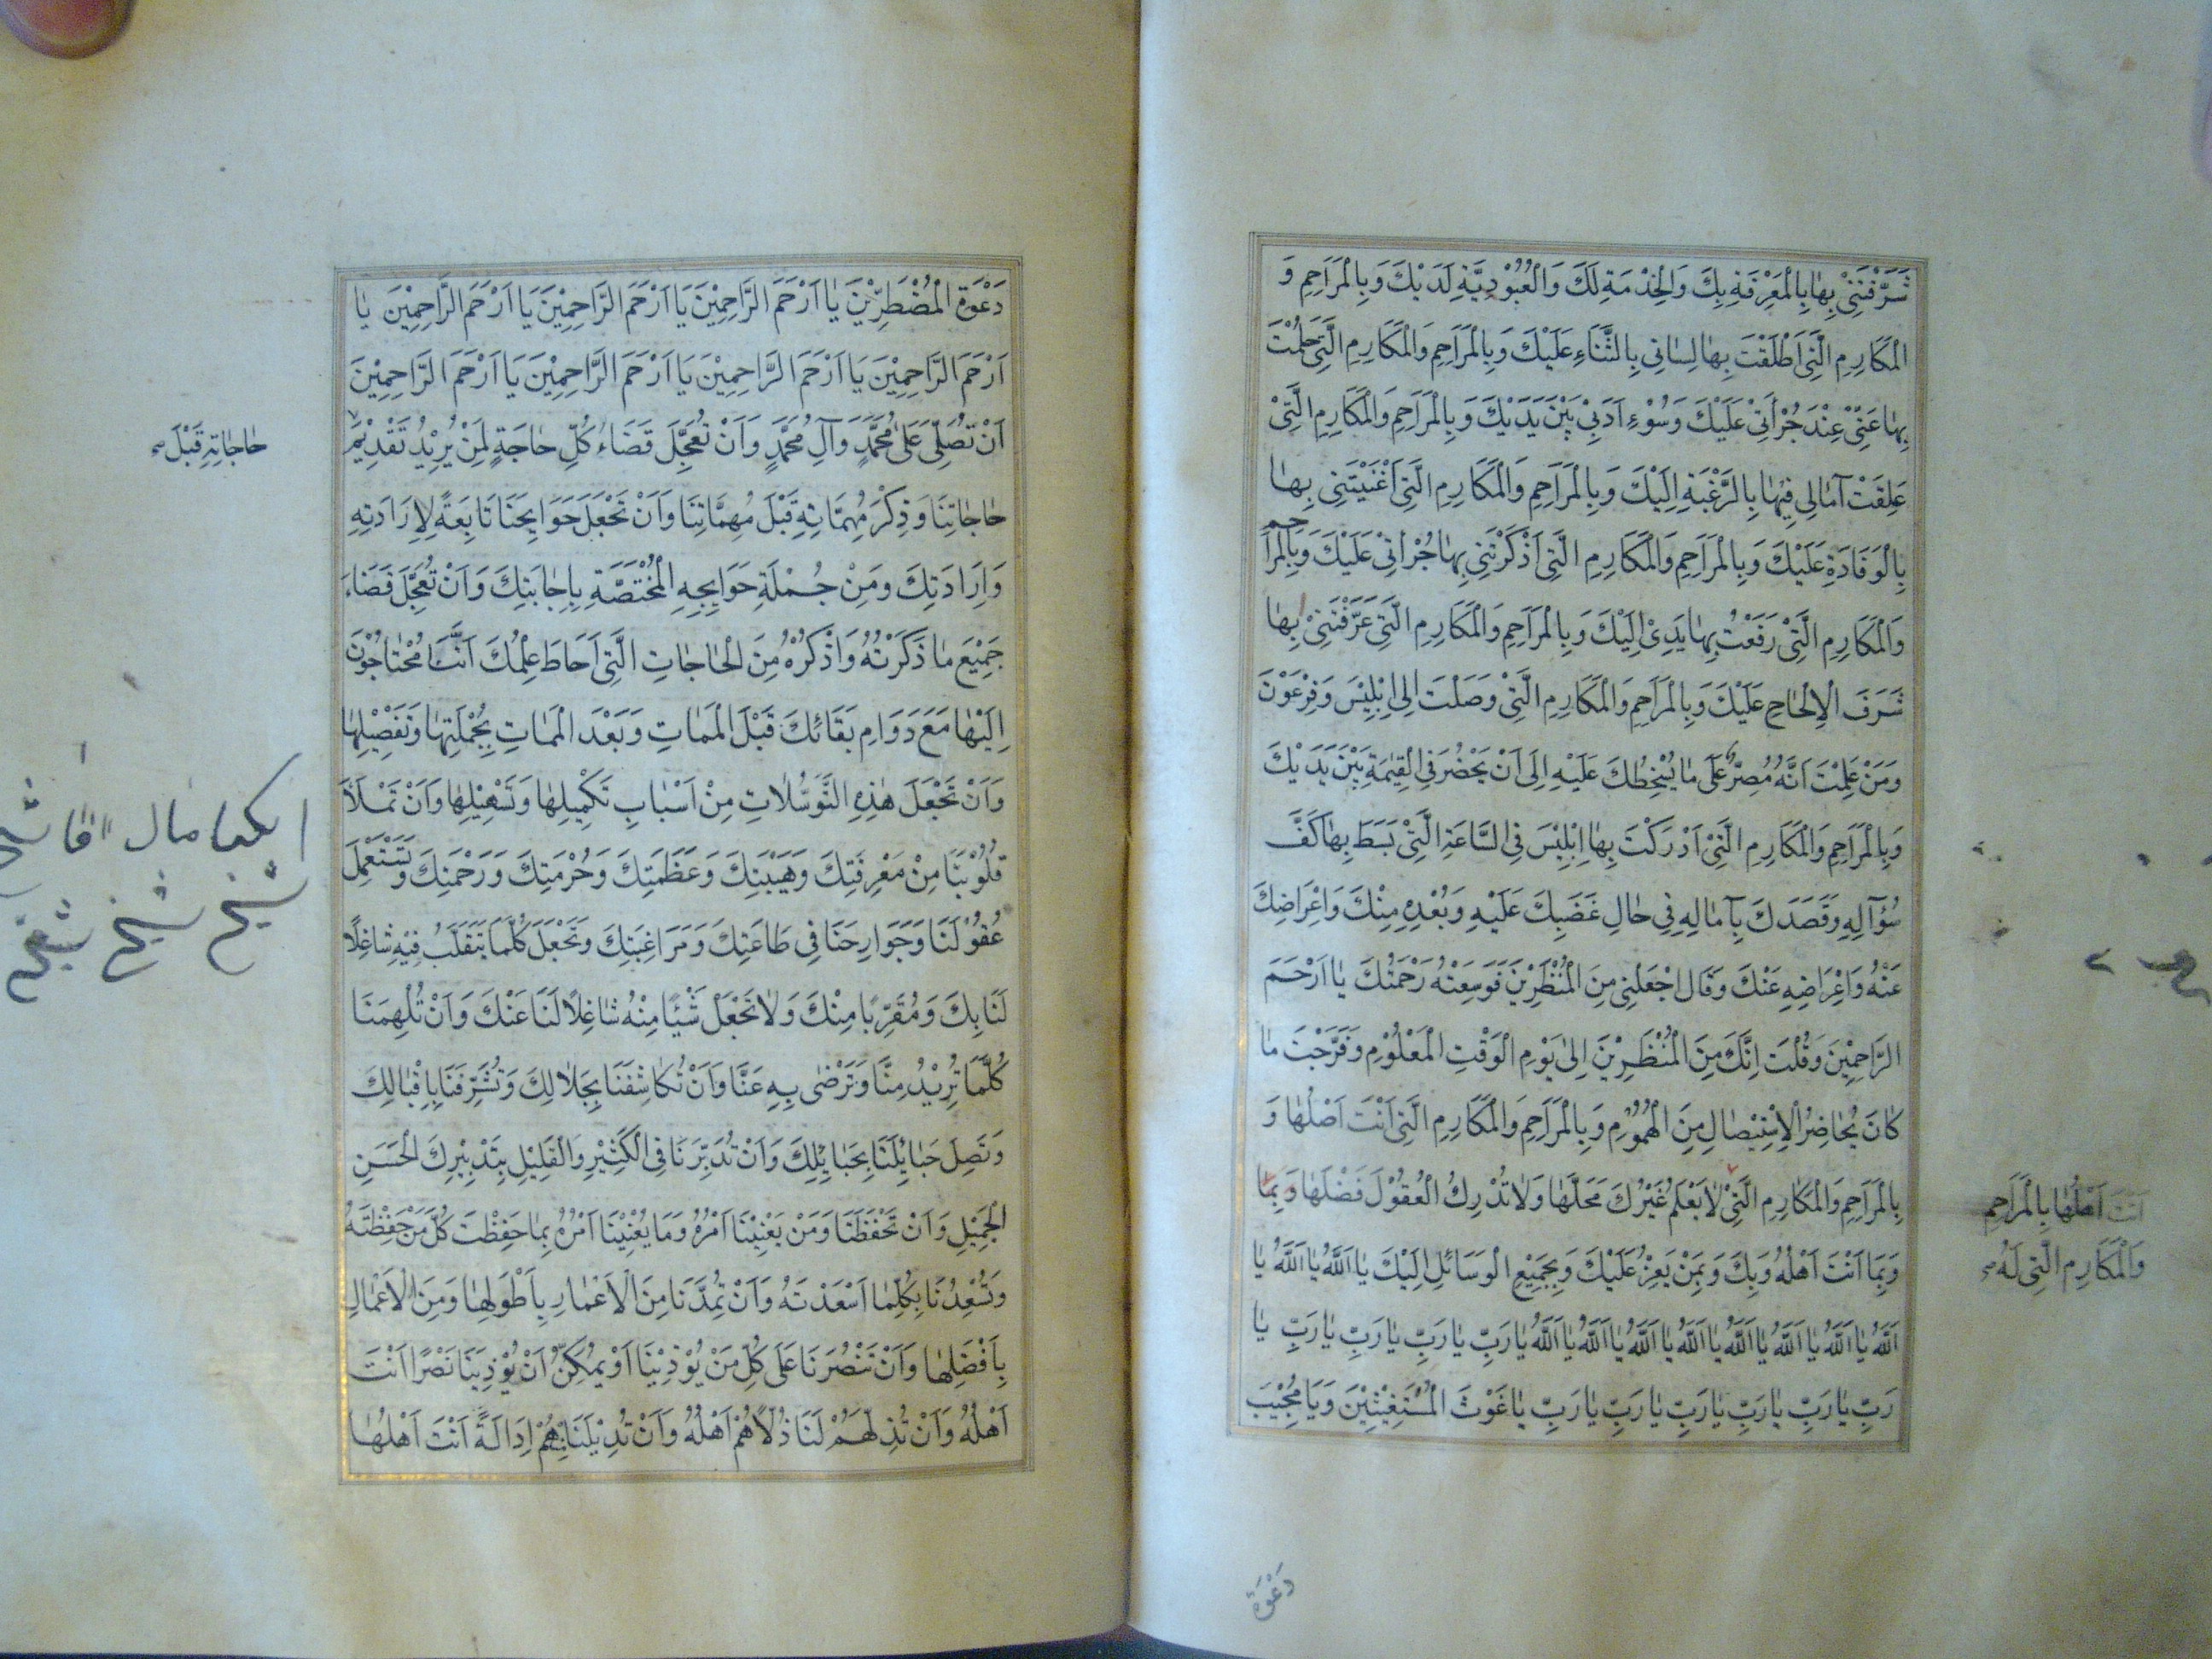 شَرَّفْتَنِيْ بِهَا بِالْمَعْرِفَةِ بِكَ وَالْخِدْمَةِ لَكَ وَالْعُبُوْدِيَّةِ لَدَيْكَ وَبِالْمَرَاحِمِ وَ
الْمَكَارِمِ الَّتِيْ اَطْلَقْتَ بِهَا لِسَانِي بِالثَّنَاءِ عَلَيْكَ وَبِالْمَرَاحِمِ وَالْمَكَارِمِ الَّتِيْ حَلُمْتَ
بِهَا عَنِّيْ عِنْدَ جُرْأَتِيْ عَلَيْكَ وَسُوْءِ اَدَبِيْ بَيْنَ يَدَيْكَ وَبِالْمَرَاحِمِ وَالْمَكَارِمِ الَّتِيْ
عَلِقَتْ آمَالِي فِيْهَا بِالرَّغْبَةِ اِلَيْكَ وَبِالْمَرَاحِمِ وَالْمَكَارِمِ الَّتِيْ اَغْنَيْتَنِي بِهَا
بِالْوِفَادَةِ عَلَيْكَ وَبِالْمَرَاحِمِ وَالْمَكَارِمِ الَّتِيْ اَذْكَرْتَنِي بِهَا جُرْأَتِيْ عَلَيْكَ وَبِالْمَرَاحِمِ
وَالْمَكَارِمِ الَّتِيْ رَفَعْتُ بِهَا يَدِيْ اِلَيْكَ وَبِالْمَرَاحِمِ وَالْمَكَارِمِ الَّتِيْ عَرَّفْتَنِيْ بِهَا
شَرَفَ الْاِلْحَاحِ عَلَيْكَ وَبِالْمَرَاحِمِ وَالْمَكَارِمِ الَّتِيْ وَصَلَتْ اِلَى اِبْلِيْسَ وَفِرْعَوْنَ
وَمَنْ عَلِمْتَ اَنَّهُ مُصِرٌّ عَلَى مَا يُسْخِطُكَ عَلَيْهِ اِلَى اَنْ يَحْضُرَ فِي الْقِيٰمَةِ بَيْنَ يَدَيْكَ
وَبِالْمَرَاحِمِ وَالْمَكَارِمِ الَّتِيْ اَدْرَكَتْ بِهَا اِبْلِيْسَ فِي السَّاعَةِ الَّتِيْ بَسَطَ بِهَا كَفَّ
سُؤَآلِهِ وَقَصَدَكَ بِآمَالِهِ فِي حَالِ غَضَبِكَ عَلَيْهِ وَبُعْدِهِ مِنْكَ وَاِعْرَاضِكَ
عَنْهُ وَاِعْرَاضِهِ عَنْكَ وَقَالَ اجْعَلْنِي مِنَ الْمُنْظَرِيْنَ فَوَسِعَتْهُ رَحْمَتُكَ يَا اَرْحَمَ
الرَّاحِمِيْنَ وَقُلْتَ اِنَّكَ مِنَ الْمُنْظَرِيْنَ اِلَى يَوْمِ الْوَقْتِ الْمَعْلُوْمِ وَفَرَّجْتَ مَا
كَانَ يُحَاضِرُ الْاِسْتِيْصَالِ مِنَ الْهُمُوْمِ وَبِالْمَرَاحِمِ وَالْمَكَارِمِ الَّتِيْ اَنْتَ اَصْلُهَا وَ
بِالْمَرَاحِمِ وَالْمَكَارِمِ الَّتِيْ لَا يَعْلَمُ غَيْرُكَ مَحَلَّهَا وَلَا تُدْرِكُ الْعُقُوْلَ فَضْلَهَا وَبِمَا
وَبِمَا اَنْتَ اَهْلُهُ وَبِكَ وَبِمَنْ يَعِزُّ عَلَيْكَ وَبِجَمِيْعِ الْوَسَائِلِ اِلَيْكَ يَا اَللّٰهُ يَا اَللّٰهُ يَا
اَللّٰهُ يَا اَللّٰهُ يَا اَللّٰهُ يَا اَللّٰهُ يَا اَللّٰهُ يَا اَللّٰهُ يَا اَللّٰهُ يَا اَللّٰهُ يَا رَبِّ يَا رَبِّ يَا رَبِّ يَا رَبِّ يَا
رَبِّ يَا رَبِّ يَا رَبِّ يَا رَبِّ يَا رَبِّ يَا رَبِّ يَا غَوْثَ الْمُسْتَغِيْثِيْنَ وَيَا مُجِيْبَ
اَنْتَ اَهْلُهَا بِالْمَرَاحِمِ
وَالْمَكَارِمِ الَّتِي لَهُ
دَعْوَة
دَعْوَةِ الْمُضْطَرِّيْنَ يَا اَرْحَمَ الرَّاحِمِيْنَ يَا اَرْحَمَ الرَّاحِمِيْنَ يَا اَرْحَمَ الرَّاحِمِيْنَ يَا
اَرْحَمَ الرَّاحِمِيْنَ يَا اَرْحَمَ الرَّاحِمِيْنَ يَا اَرْحَمَ الرَّاحِمِيْنَ يَا اَرْحَمَ الرَّاحِمِيْنَ
اَنْ تُصَلِّيَ عَلَى مُحَمَّدٍ وَآلِ مُحَمَّدٍ وَاَنْ تُعَجِّلَ قَضَاءَ كُلِّ حَاجَةٍ لِمَنْ يُرِيْدُ تَقْدِيْمَ
حَاجَاتِهِ قَبْلَ
حَاجَاتِنَا وَذِكْرَ مُهِمَّاتِهِ قَبْلَ مُهِمَّاتِنَا وَاَنْ تَجْعَلَ حَوَايِجَنَا تَابِعَةً لِاِرَادَتِهِ
وَاِرَادَتِكَ وَمِنْ جُمْلَةِ حَوَايِجِهِ الْمُخْتَصَّةِ بِاِجَابَتِكَ وَاَنْ تُعَجِّلَ قَضَاءَ
جَمِيْعِ مَا ذَكَرْتُهُ وَاَذْكُرُهُ مِنَ الْحَاجَاتِ الَّتِيْ اَحَاطَ عِلْمُكَ اَنَّنَا مُحْتَاجُوْنَ
اِلَيْهَا مَعَ دَوَامِ بَقَائِكَ قَبْلَ الْمَمَاتِ وَبَعْدَ الْمَمَاتِ بِجُمْلَتِهَا وَتَفْصِيْلِهَا
وَاَنْ تَجْعَلَ هٰذِهِ التَّوَسُّلَاتِ مِنْ اَسْبَابِ تَكْمِيْلِهَا وَتَسْهِيْلِهَا وَاَنْ تَمْلَأَ
قُلُوْبَنَا مِنْ مَعْرِفَتِكَ وَهَيْبَتِكَ وَعَظَمَتِكَ وَحُرْمَتِكَ وَرَحْمَتِكَ وَتَسْتَعْمِلَ
عُقُوْلَنَا وَجَوَارِحَنَا فِي طَاعَتِكَ وَمَرَاغِبَتِكَ وَتَجْعَلَ كُلَّمَا تَتَقَلَّبُ فِيْهِ شَاغِلًا
لَنَا بِكَ وَمُقَرِّبًا مِنْكَ وَلَا تَجْعَلْ شَيْئًا مِنْهُ شَاغِلًا لَنَا عَنْكَ وَاَنْ تُلْهِمَنَا
كُلَّمَا تُرِيْدُ مِنَّا وَتَرْضٰى بِهِ عَنَّا وَاَنْ تُكَاشِفَنَا بِجَلَالِكَ وَتُشَرِّفَنَا بِاِقْبَالِكَ
وَتَصِلَ حَبَايِلَنَا بِحَبَايِلِكَ وَاَنْ تُدَبِّرَنَا فِي الْكَثِيْرِ وَالْقَلِيْلِ بِتَدْبِيْرِكَ الْحَسَنِ
الْجَمِيْلِ وَاَنْ تَحْفَظَنَا وَمَنْ يَعْنِيْنَا اَمْرُهُ وَمَا يَعْنِيْنَا اَمْرُهُ بِمَا حَفِظْتَ كُلَّ مَنْ حَفِظْتَهُ
وَتُسْعِدَنَا بِكُلِّمَا اَسْعَدْتَهُ وَاَنْ تُمِدَّنَا مِنَ الْاَعْمَارِ بِاَطْوَلِهَا وَمِنَ الْاَعْمَالِ
بِاَفْضَلِهَا وَاَنْ تَنْصُرَنَا عَلَى كُلِّ مَنْ يُوْذِيْنَا اَوْ يُمْكِنُ اَنْ يُوْذِيَنَا نَصْرًا اَنْتَ
اَهْلُهُ وَاَنْ تُذِلَّهُمْ لَنَا ذُلًّا هُمْ اَهْلُهُ وَاَنْ تُدِيْلَنَا مِنْهُمْ اِدَالَةً اَنْتَ اَهْلُهَا
شيخ شيخ شيخ